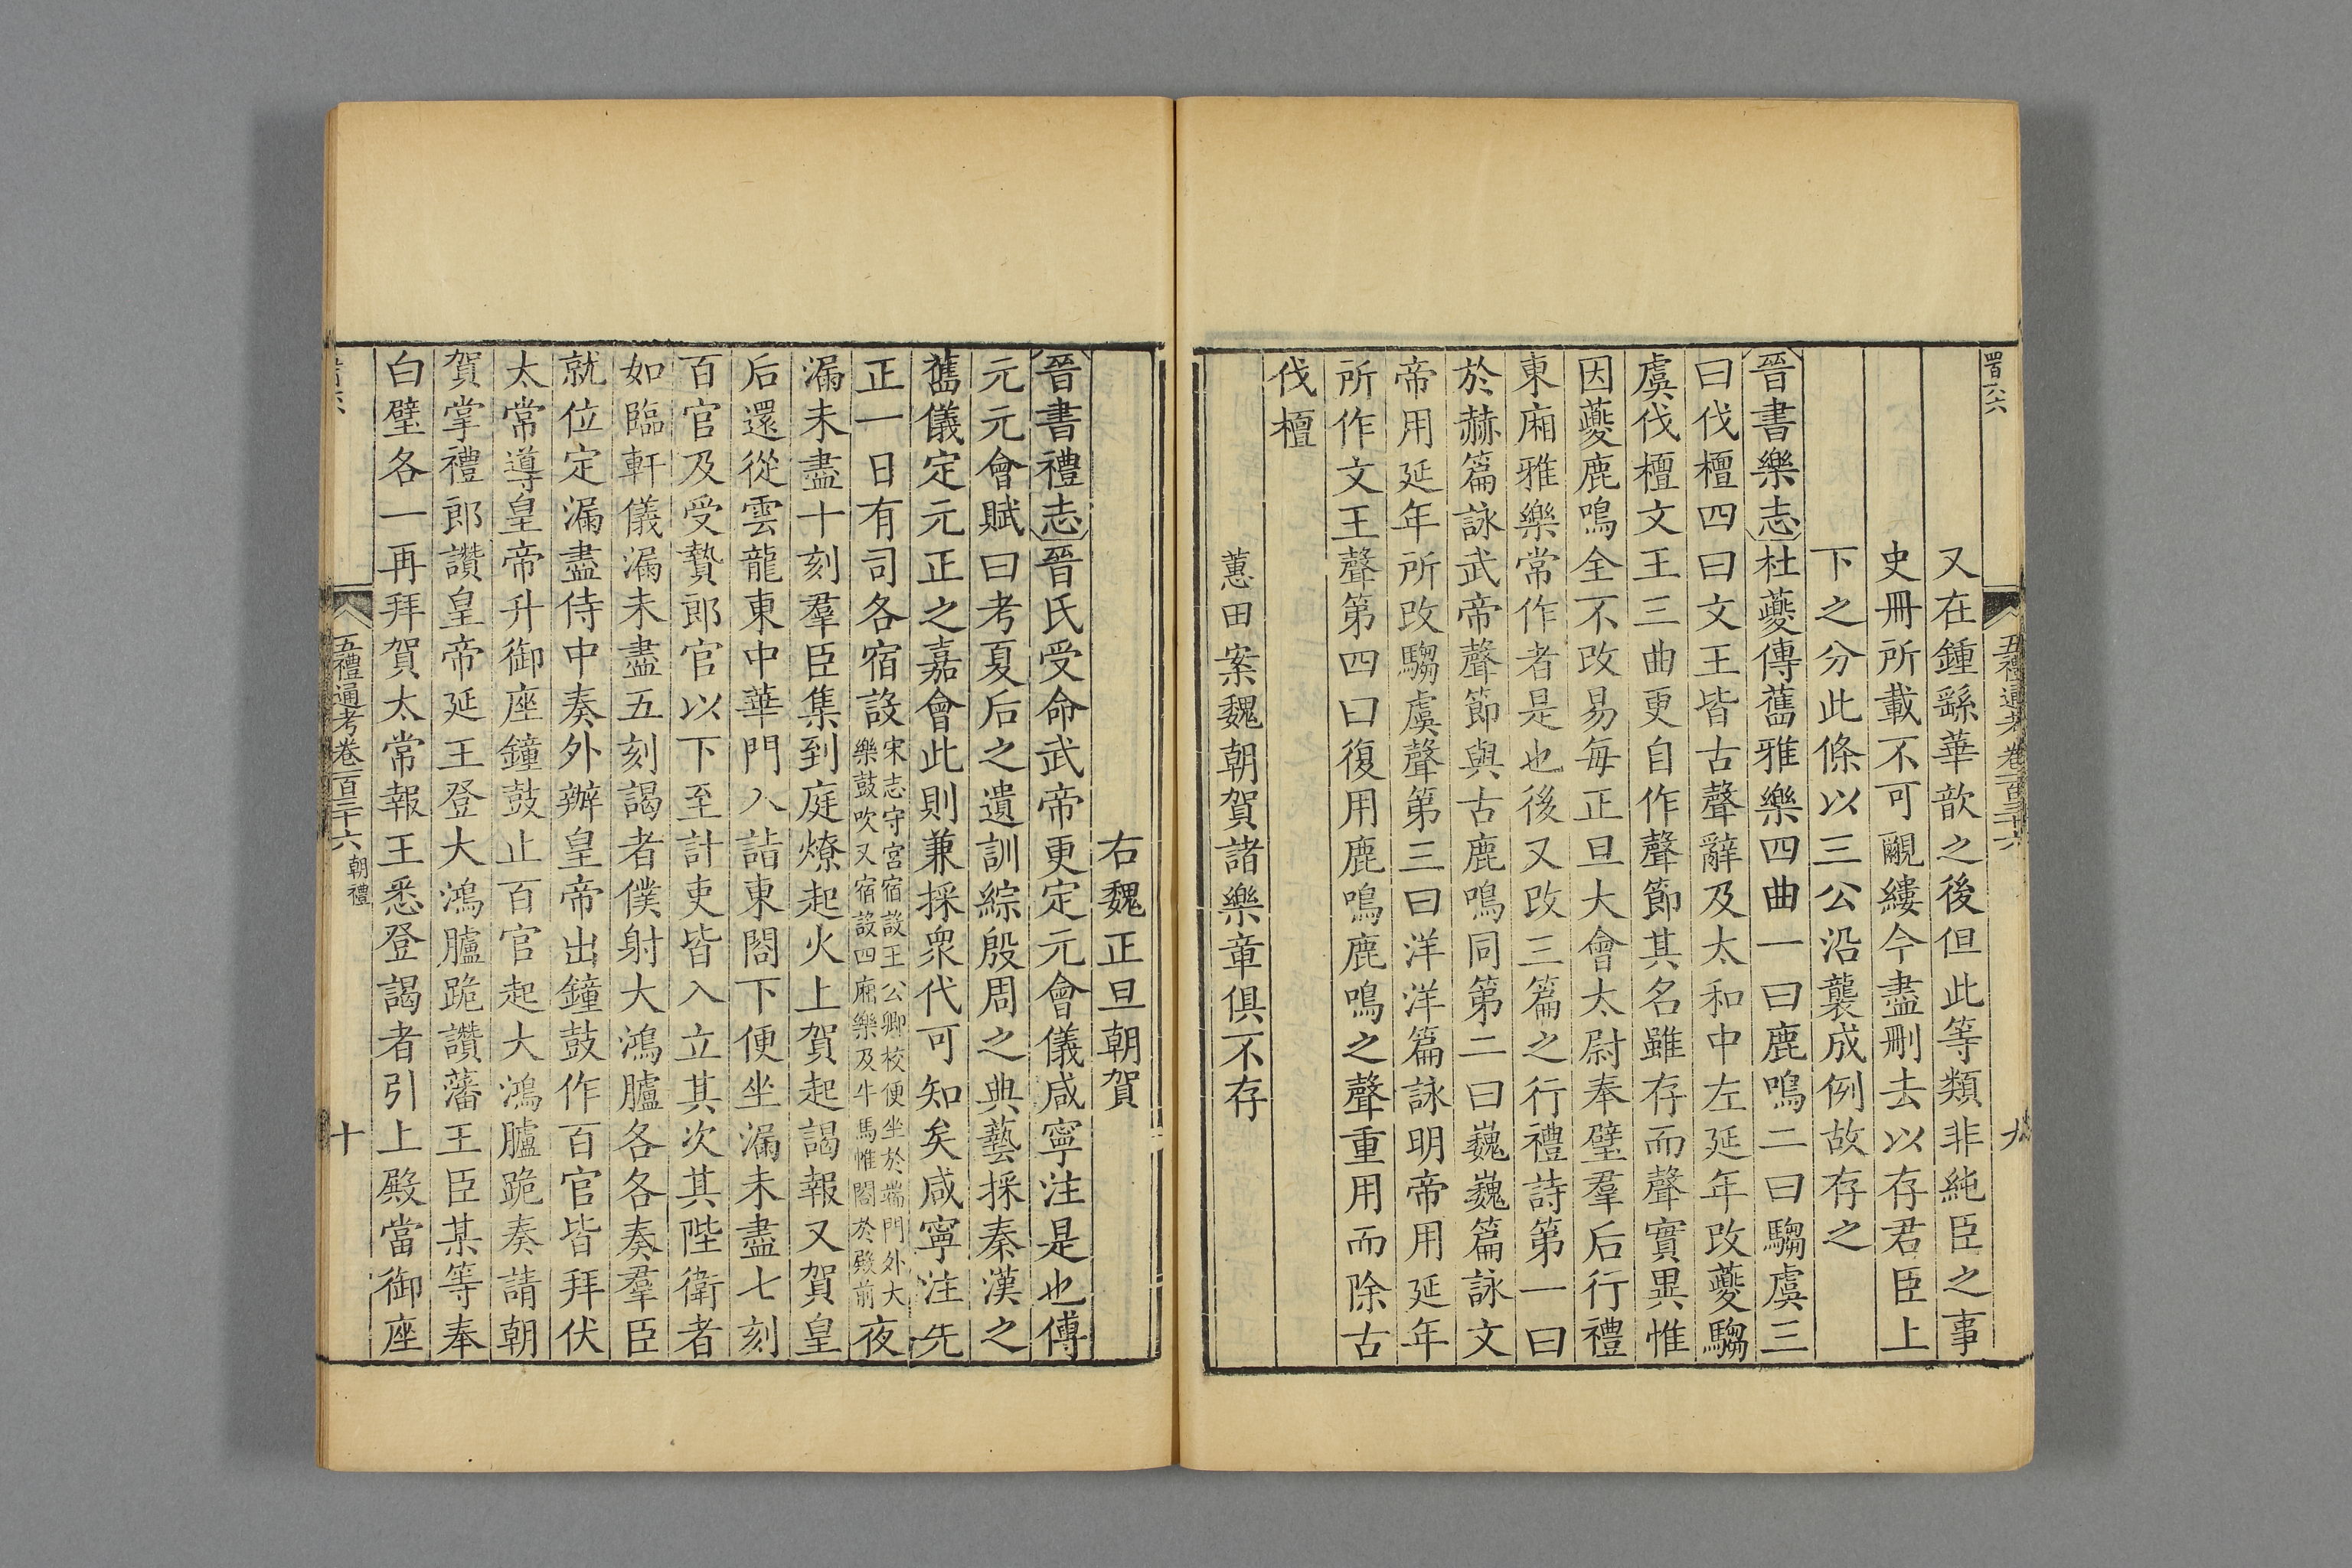 五禮通考卷一百三十六
九
又在鍾繇華歆之後但此等類非純臣之事
史冊所載不可覼縷今盡刪去以存君臣上
下之分此條以三公沿襲成例故存之
晉書樂志杜夔傳舊雅樂四曲一曰鹿鳴二曰騶虞三
曰伐檀四曰文王皆古聲辭及太和中左延年改夔騶
虞伐檀文王三曲更自作聲節其名雖存而聲實異惟
因夔鹿鳴全不改易每正旦大會太尉奉璧羣后行禮
東廂雅樂常作者是也後又改三篇之行禮詩第一曰
於赫篇詠武帝聲節與古鹿鳴同第二曰巍巍篇詠文
帝用延年所改騶虞聲第三曰洋洋篇詠明帝用延年
所作文王聲第四曰復用鹿鳴鹿鳴之聲重用而除古
伐檀
蕙田案魏朝賀諸樂章俱不存
右魏正旦朝賀
晉書禮志晉氏受命武帝更定元會儀咸寧注是也傅
元元會賦曰考夏后之遺訓綜殷周之典藝採秦漢之
舊儀定元正之嘉會此則兼採眾代可知矣咸寧注先
正一日有司各宿設宋志守宮宿設王公卿校便坐於端門外大樂鼓吹又宿設四廂樂及牛馬帷閤於殿前夜
漏未盡十刻羣臣集到庭燎起火上賀起謁報又賀皇
后還從雲龍東中華門入詣東閤下便坐漏未盡七刻
百官及受贄郎官以下至計吏皆入立其次其陛衛者
如臨軒儀漏未盡五刻謁者僕射大鴻臚各各奏羣臣
就位定漏盡侍中奏外辦皇帝出鐘鼓作百官皆拜伏
太常導皇帝升御座鐘鼓止百官起大鴻臚跪奏請朝
賀掌禮郎讚皇帝延王登大鴻臚跪讚藩王臣某等奉
白璧各一再拜賀太常報王悉登謁者引上殿當御座
五禮通考卷一百三十六 朝禮
十